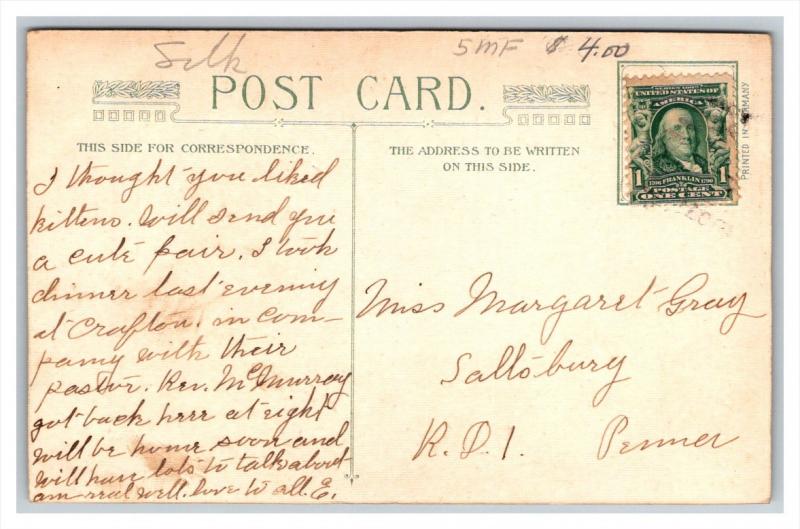 Silk
5MF $ 4.00
POST CARD.
THIS SIDE FOR CORRESPONDENCE.
THE ADDRESS TO BE WRITTEN
ON THIS SIDE.
PRINTED IN GERMANY
SERIES 1902
UNITED STATES OF
AMERICA
1 1706 FRANKLIN 1790 1
POSTAGE
ONE CENT
I thought you liked
kittens. Will send you
a cute pair. I took
dinner last evening
at Crafton. in com-
pany with their
pastor. Rev. McMurray
got back here at eight
will be home soon and
will have lots to talk about
am real well. love to all. E.
Miss Margaret Gray
Saltsburg
R.D.1. Penna